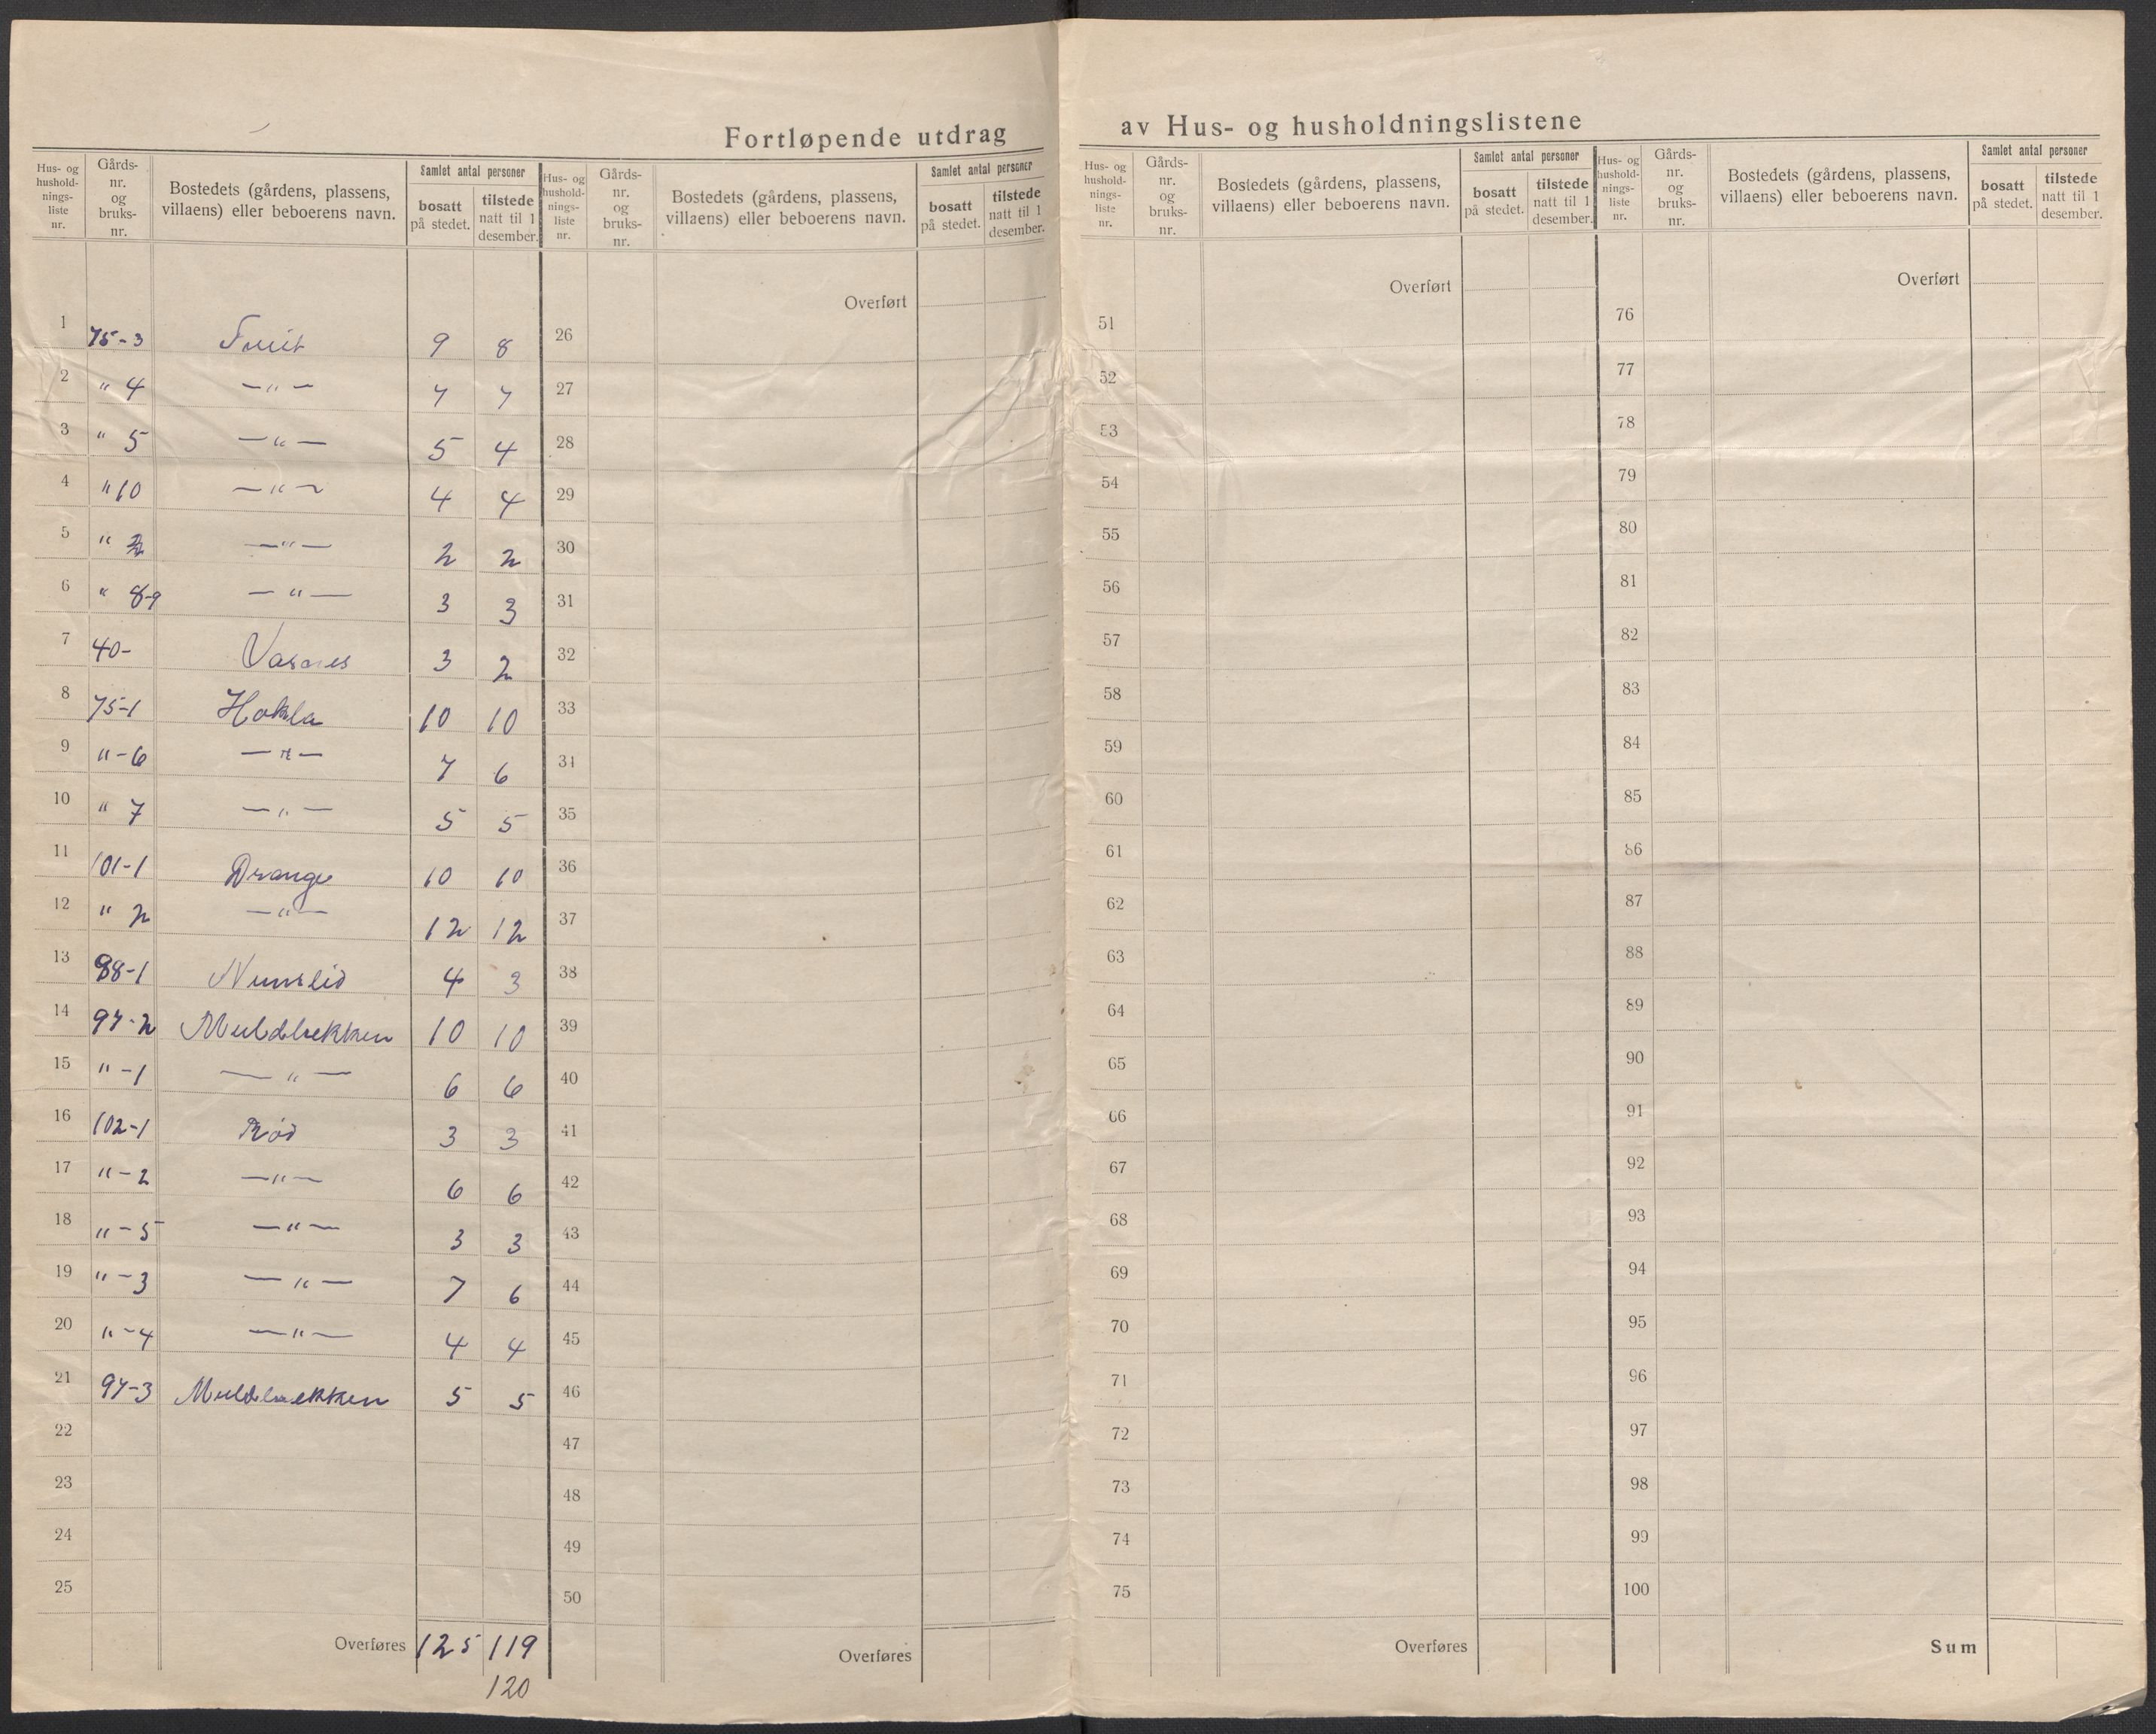 Fortløpende utdrag av Hus- og husholdningslistene
Hus- og husholdnings-liste nr. | Gårds-nr. og bruks-nr. | Bostedets (gårdens, plassens, villaens) eller beboerens navn. | Samlet antal personer | bosatt på stedet. | tilstede natt til 1 desember.
1 75-3 9 8
2 " 4 —"— 7 7
3 " 5 —"— 5 4
4 " 10 —"— 4 4
5 " 2 —"— 2 2
6 " 8-9 —"— 3 3
7 40- 3 2
8 75-1 Hokla 10 10
9 "-6 —"— 7 6
10 " 7 —"— 5 5
11 101-1 Drange 10 10
12 " 2 —"— 12 12
13 98-1 4 3
14 97-2 10 10
15 "-1 —"— 6 6
16 102-1 Rød 3 3
17 "-2 —"— 6 6
18 "-5 —"— 3 3
19 "-3 —"— 7 6
20 "-4 —"— 4 4
21 97-3 5 5
22
23
24
25
Overføres 125 119
120
Hus- og husholdnings-liste nr. | Gårds-nr. og bruks-nr. | Bostedets (gårdens, plassens, villaens) eller beboerens navn. | Samlet antal personer | bosatt på stedet. | tilstede natt til 1 desember.
Overført
26
27
28
29
30
31
32
33
34
35
36
37
38
39
40
41
42
43
44
45
46
47
48
49
50
Overføres
Hus- og husholdnings-liste nr. | Gårds-nr. og bruks-nr. | Bostedets (gårdens, plassens, villaens) eller beboerens navn. | Samlet antal personer | bosatt på stedet. | tilstede natt til 1 desember.
Overført
51
52
53
54
55
56
57
58
59
60
61
62
63
64
65
66
67
68
69
70
71
72
73
74
75
Overføres
Hus- og husholdnings-liste nr. | Gårds-nr. og bruks-nr. | Bostedets (gårdens, plassens, villaens) eller beboerens navn. | Samlet antal personer | bosatt på stedet. | tilstede natt til 1 desember.
Overført
76
77
78
79
80
81
82
83
84
85
86
87
88
89
90
91
92
93
94
95
96
97
98
99
100
Sum